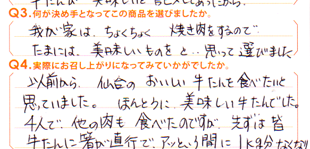 牛たんが 美味しいと
Q3.何が決め手となってこの商品を選びましたか。
我が家は、ちょくちょく 焼き肉をするので
たまには、美味しいものを と… 思って選びました
Q4.実際にお召し上がりになってみていかがでしたか。
以前から、仙台の おいしい 牛たんを食べたいと
思っていました。 ほんとうに 美味しい牛たんでした。
4人で、他の肉も 食べたのですが、先ずは 皆
牛たんに 箸が直行で、アッという間に 1kg分なくなり